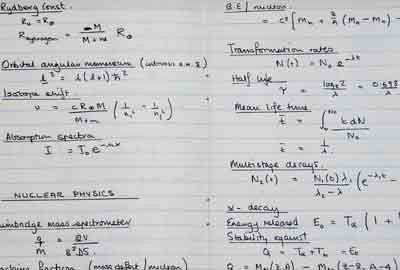 Rydberg Const.
R∞ = R∞
R hydrogen = M / M + m R∞
Orbital angular momentum (intrinsic a.m. S)
L² = l(l+1) ħ²
Isotope shift.
ν = c R∞ M / M + m ( 1/n₁² - 1/n₂² )
Absorption spectra
I = I₀ e^-nαx
NUCLEAR PHYSICS
mass spectrometer
q / M = 2V / B²DS
fraction (mass defect / nucleon)
B.E / nucleon
= c² [ Mn + Z/A (MH - Mn) -
Transformation rates
N(t) = N₀ e^-λt
Half life
τ = loge2 / λ = 0.693 / λ
Mean life time
t̄ = ∫ t dN / N₀
t̄ = 1/λ
Multistage decays.
N₂(t) = N₁(0) λ₁ / λ₂ - λ₁ ( e^-λ₁t -
α - decay
Energy released E₀ = Tα ( 1 +
Stability against
Q = Tα + Tb = E₀
Q = M(Z,A) - M(Z-2, A-4)